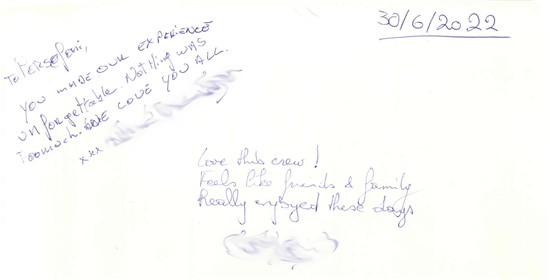 30/6/2022
To Persefoni,
YOU MADE OUR EXPERIENCE
unforgettable. Nothing was
Too much. WE LOVE YOU ALL.
xxx
Love this crew!
Feels like friends & family
Really enjoyed these days